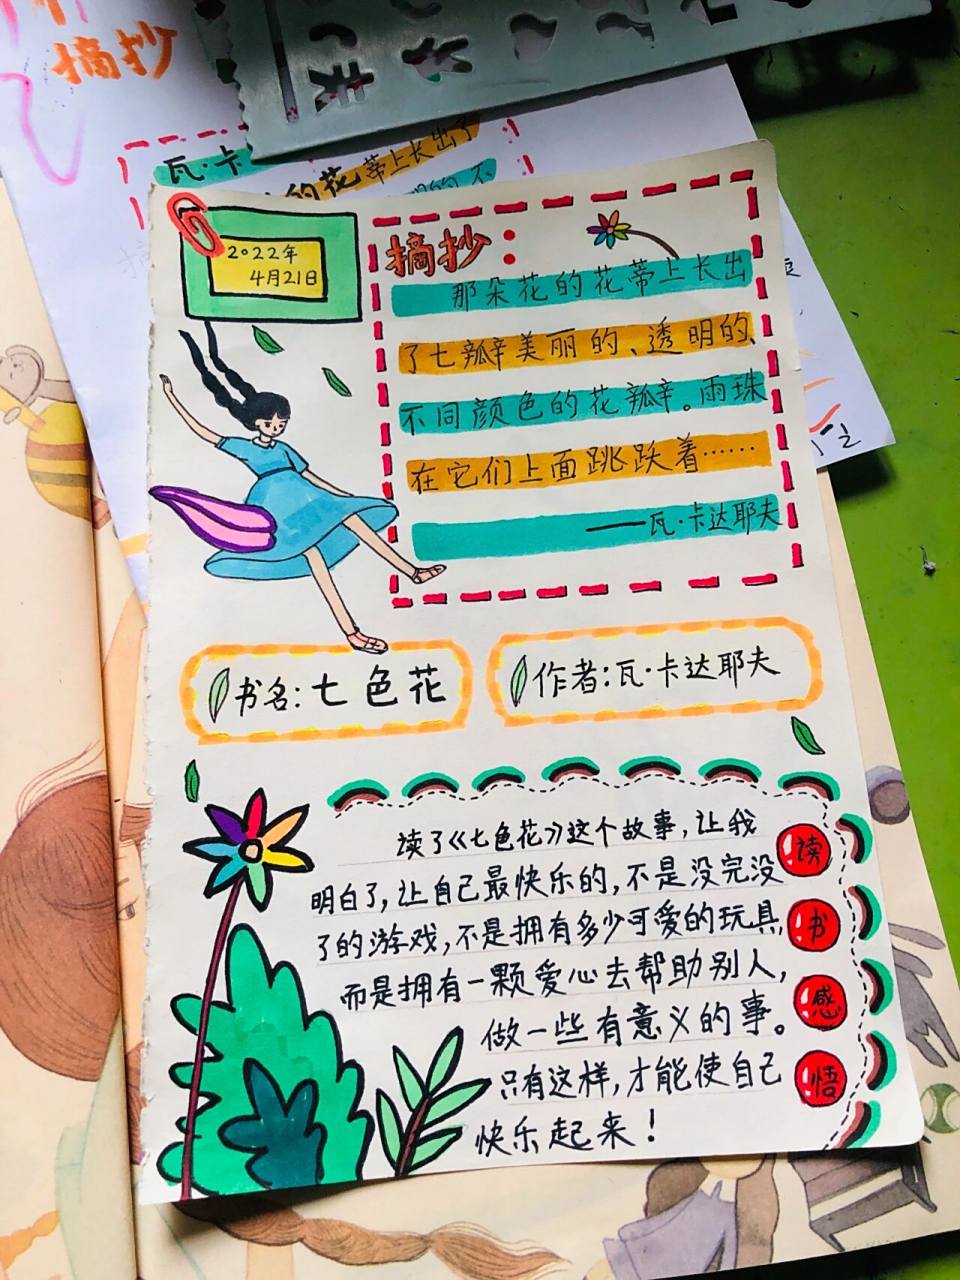 摘抄
瓦·卡
的花蒂上长出了
明的、不
2022年
4月21日
摘抄：
那朵花的花蒂上长出
了七瓣美丽的、透明的、
不同颜色的花瓣。雨珠
在它们上面跳跃着……
——瓦·卡达耶夫
书名：七色花
作者：瓦·卡达耶夫
读了《七色花》这个故事，让我
明白了，让自己最快乐的，不是没完没
了的游戏，不是拥有多少可爱的玩具，
而是拥有一颗爱心去帮助别人，
做一些有意义的事。
只有这样，才能使自己
快乐起来！
读
书
感
悟